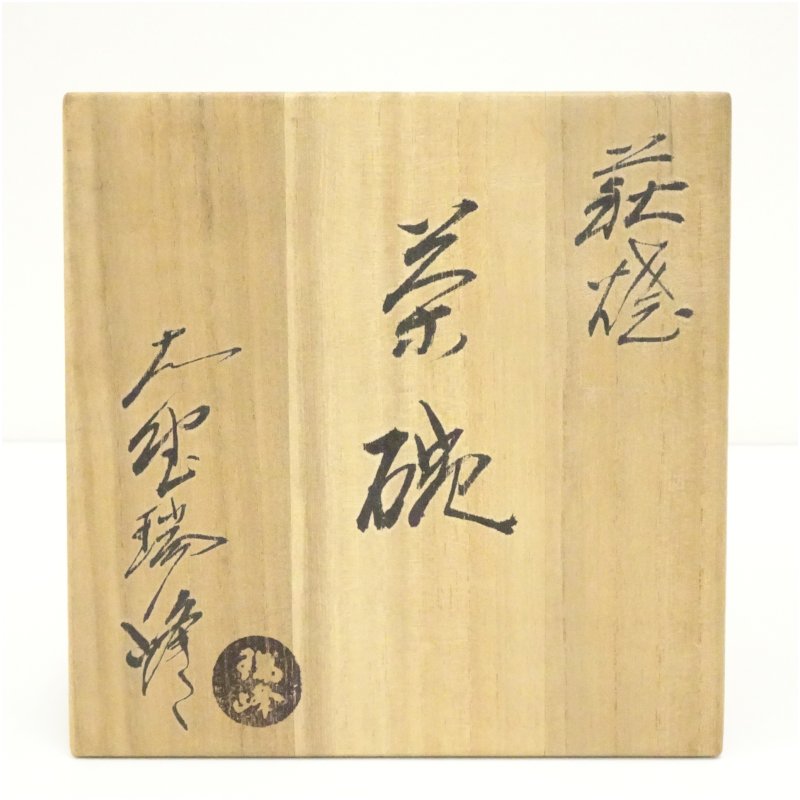 萩焼
茶碗
大野瑞峰
瑞峰